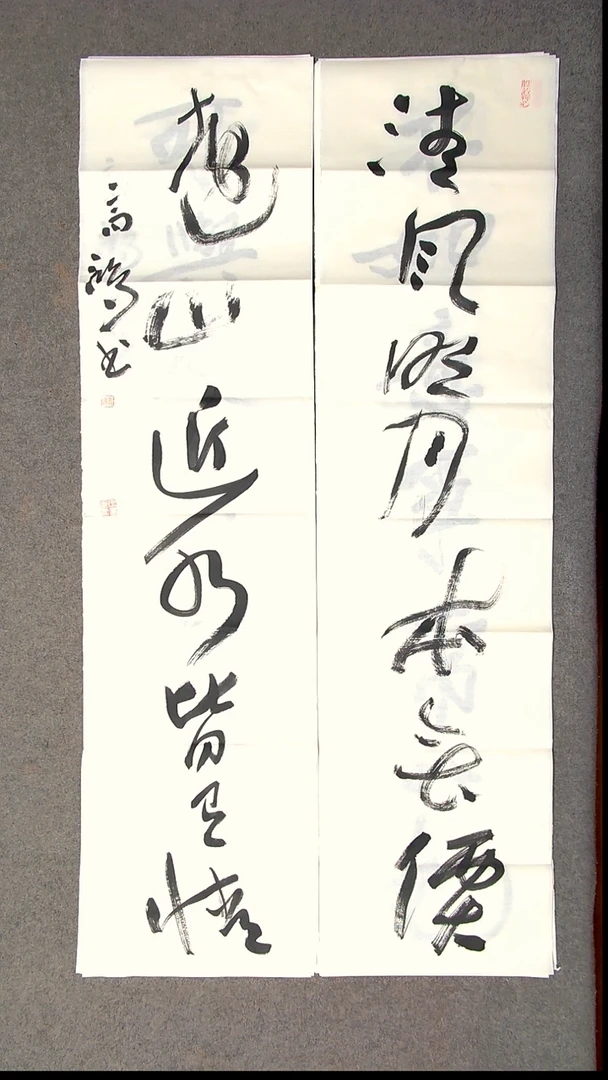 清風明月本無價
遠山近水皆有情
高
書